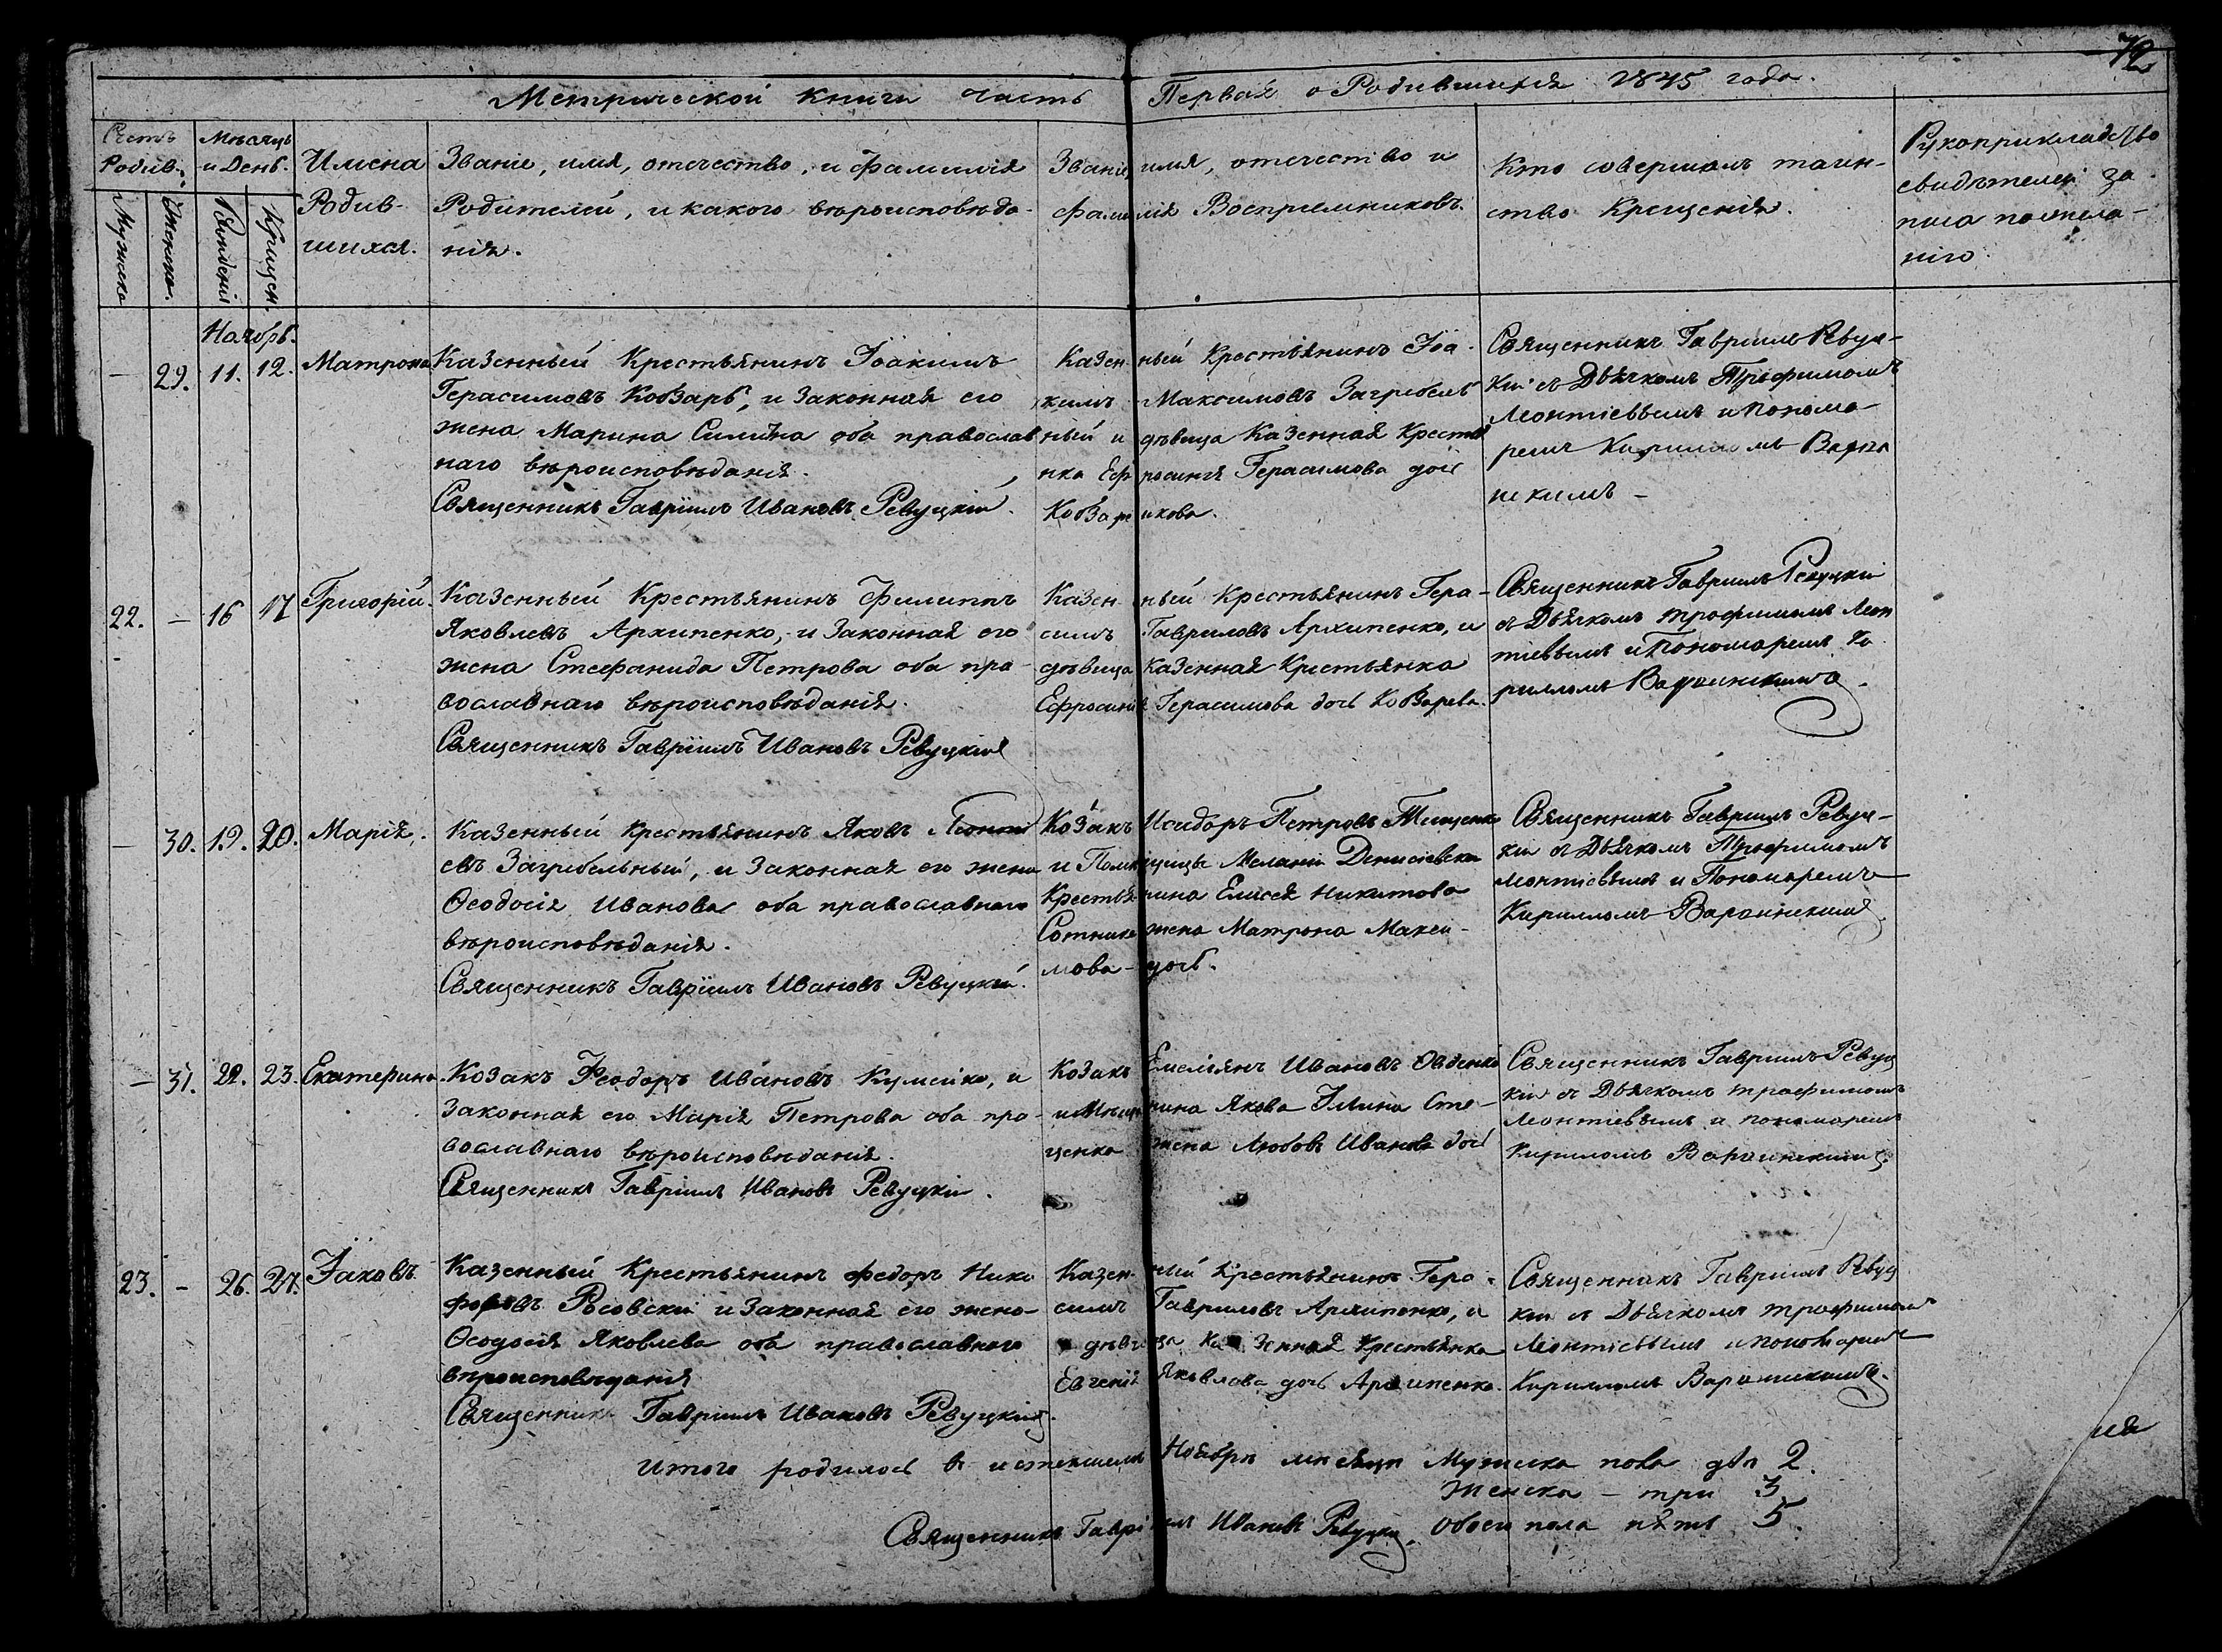 72
Метрической книги часть Первая о Родившихся 1845 года.
Счетъ Родив.
Мѣсяцъ и День.
Имена Родившихся.
Званіе, имя, отечество, и фамилія
Родителей, и какого вѣроисповѣда-
нія.
Званіе, имя, отечество и
фамилія Воспріемниковъ.
Кто совершалъ таин-
ство Крещенія.
Рукоприкладство
свидѣтелей за
писа по желa-
нію.
Мужеска
Женска.
Рожденія
Крещен.
Ноябрь.
— 29. 11. 12. Матрона
Казенный Крестьянинъ Іоакимъ
Герасимовъ Кобзарь, и Законная его
жена Марина Силина оба православ
наго вѣроисповѣданія.
Священникъ Гавріилъ Ивановъ Ревуцкій.
Казенный Крестьянинъ Іоа-
кимъ Максимовъ Загребель
ный и дѣвица Казенная Крестья
нка Ефросинія Герасимова дочь
Кобзарикова.
Священникъ Гавріилъ Ревуц-
кій съ Дьячкомъ Трофимомъ
Леонтіевымъ и понома-
ремъ Кирилломъ
22. — 16 17 Григорій.
Казенный Крестьянинъ Филиппъ
Яковлевъ Архипенко, и Законная его
жена Стефанида Петрова оба пра-
вославнаго вѣроисповѣданія.
Священникъ Гавріилъ Ивановъ Ревуцкій
Казенный Крестьянинъ Гера-
симъ Гавриловъ Архипенко, и
дѣвица Казенная Крестьянка
Ефросинія Герасимова дочь Кобзарева.
Священникъ Гавріилъ Ревуцкій
съ Дьячкомъ Трофимомъ Леон
тіевымъ и Пономаремъ Ки
рилломъ
— 30. 19. 20. Марія.
Казенный крестьянинъ Яковъ Леонті
евъ Загребельный, и Законная его жена
Ѳеодосія Иванова оба православнаго
вѣроисповѣданія.
Священникъ Гавріилъ Ивановъ Ревуцкій.
Козакъ Исидоръ Петровъ Тищенко
и Помѣщицы Меланіи Денисіевска
Крестьянина Елисея Никитова
Сотника жена Матрона Макси-
мова дочь.
Священникъ Гавріилъ Ревуц-
кій съ Дьячкомъ Трофимомъ
Леонтіевымъ и Пономаремъ
Кирилломъ
— 31. 22. 23. Екатерина.
Козакъ Ѳеодоръ Ивановъ Кумейко, и
Законная его Марія Петрова оба пра-
вославнаго вѣроисповѣданія.
Священникъ Гавріилъ Ивановъ Ревуцкій.
Козакъ Емеліянъ Ивановъ Овденко
и Мѣщанина Якова Ильина Сте-
ценка жена Любовь Иванова дочь
Священникъ Гавріилъ Ревуц
кій съ Дьячкомъ Трофимомъ
Леонтіевымъ и пономаремъ
Кирилломъ
23. — 26. 27. Іаковъ.
Казенный Крестьянинъ Федоръ Ники
форовъ Росовскій и Законная его жена
Ѳеодосія Яковлева оба православнаго
вѣроисповѣданія
Священникъ Гавріилъ Ивановъ Ревуцкій.
Казенный Крестьянинъ Гера-
симъ Гавриловъ Архипенко, и
дѣвица Казенная Крестьянка
Евгенія Яковлева дочь Архипенко.
Священникъ Гавріилъ Ревуц
кій съ Дьячкомъ Трофимомъ
Леонтіевымъ и пономаремъ
Кирилломъ
Итого родилось въ истекшемъ Ноябрѣ мѣсяцѣ Мужеска пола два 2.
Женска — три 3
Священникъ Гавріилъ Ивановъ Ревуцкій. Обоего пола пять 5.